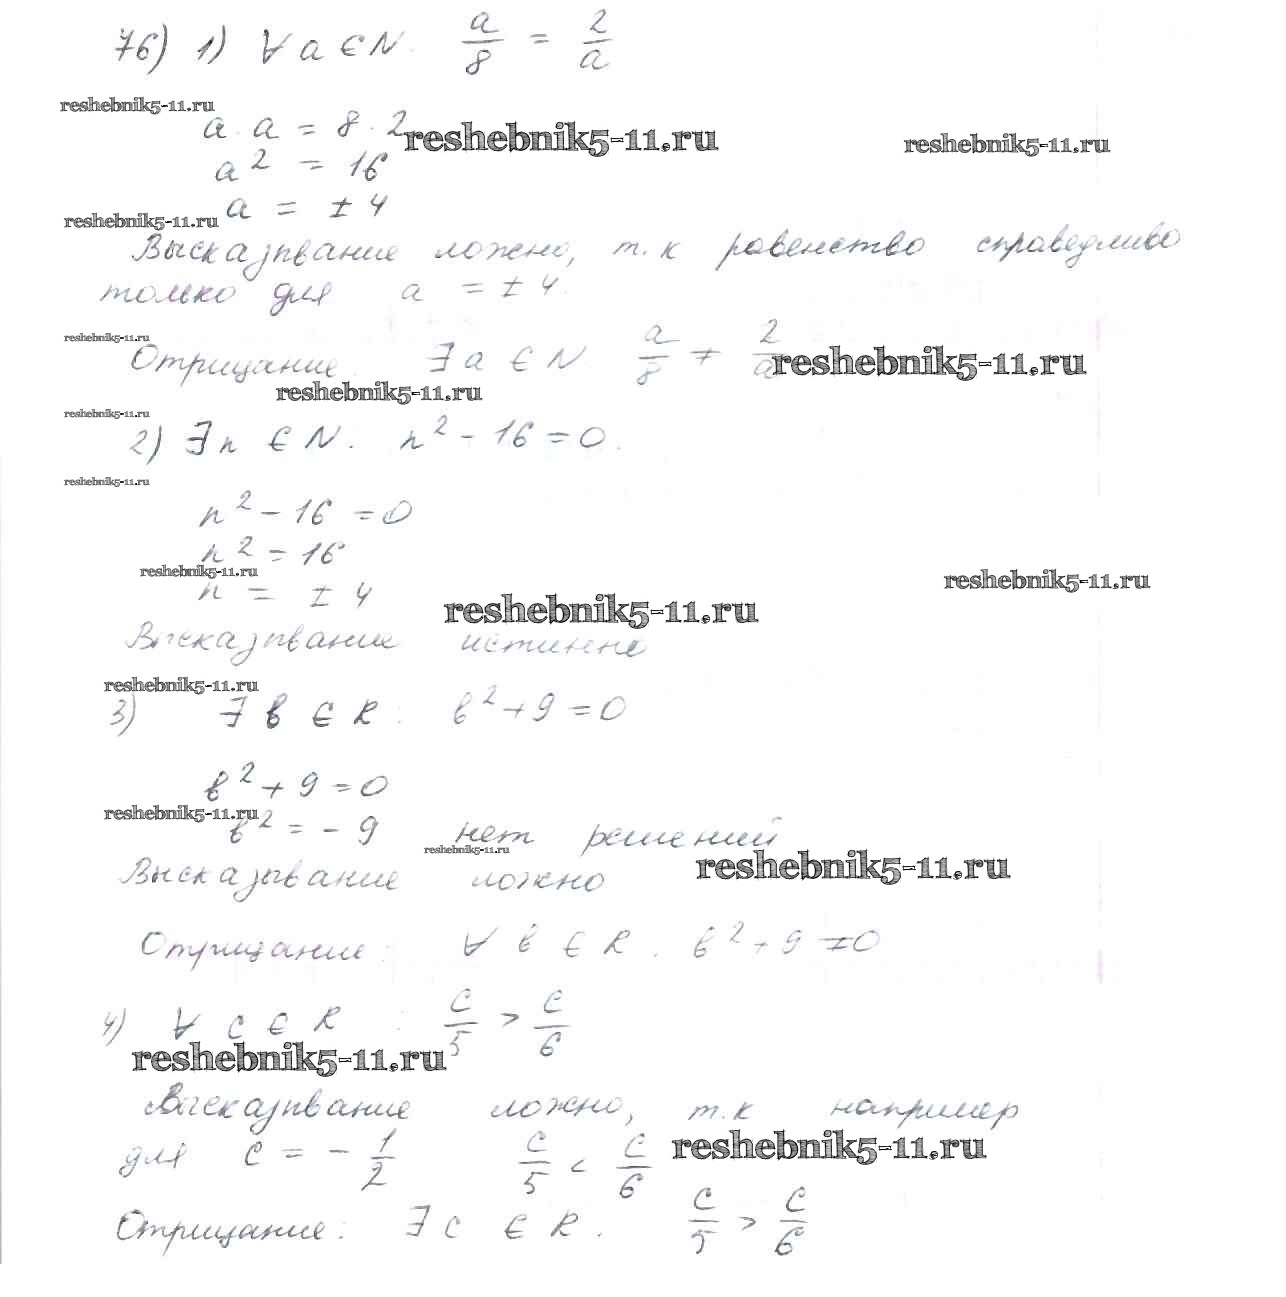 76) 1) ∀ a ∈ N. a/8 = 2/a
reshebnik5-11.ru
a · a = 8 · 2
reshebnik5-11.ru
reshebnik5-11.ru
a² = 16
reshebnik5-11.ru
a = ± 4
Высказывание ложно, т.к равенство справедливо
только для a = ± 4.
reshebnik5-11.ru
Отрицание ∃ a ∈ N a/8 ≠ 2/a
reshebnik5-11.ru
reshebnik5-11.ru
reshebnik5-11.ru
2) ∃ n ∈ N: n² - 16 = 0.
reshebnik5-11.ru
n² - 16 = 0
n² = 16
reshebnik5-11.ru
reshebnik5-11.ru
n = ± 4
reshebnik5-11.ru
Высказывание истинно
reshebnik5-11.ru
3) ∃ в ∈ R: в² + 9 = 0
в² + 9 = 0
reshebnik5-11.ru
в² = - 9 нет решений
reshebnik5-11.ru
reshebnik5-11.ru
Высказывание ложно
Отрицание: ∀ в ∈ R. в² + 9 ≠ 0
4) ∀ c ∈ R : c/5 > c/6
reshebnik5-11.ru
Высказывание ложно, т.к например
для c = - 1/2 c/5 < c/6
reshebnik5-11.ru
Отрицание: ∃ c ∈ R. c/5 > c/6